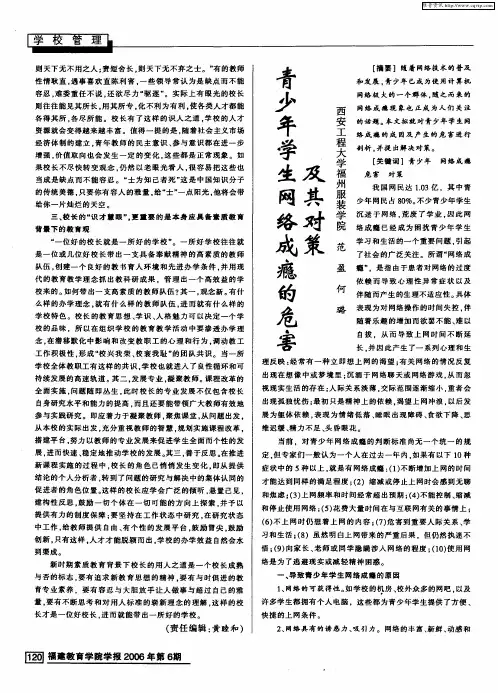 维普资讯 http://www.cqvip.com
学 校 管 理
则天下无不用之人；责短舍长，则天下无不弃之士。”有的教师
性情耿直，遇事喜欢直陈利害，一些领导常认为是缺点而不能
容忍，难委重任不说，还欲尽力“驱逐”。实际上有眼光的校长
则往往能见其所长，用其所专，化不利为有利，使各类人才都能
各得其所、各尽所能。校长有了这样的识人之道，学校的人才
资源就会变得越来越丰富。值得一提的是，随着社会主义市场
经济体制的建立，青年教师的民主意识、参与意识都在进一步
增强，价值取向也会发生一定的变化，这些都是正常现象。如
果校长不尽快转变观念，仍然以老眼光看人，很容易把这些也
当成是缺点而不能容忍。“士为知己者死”这是中国知识分子
的传统美德，只要你有容人的雅量，给“士”一点阳光，他将会带
给你一片灿烂的天空。
三、校长的“识才慧眼”，更重要的是本身应具备素质教育
背景下的教育观
“一位好的校长就是一所好的学校”。一所好学校往往就
是一位或几位好校长带出一支具备奉献精神的高素质的教师
队伍，创建一个良好的教书育人环境和先进办学条件，并用现
代的教育教学理念抓出教科研成果，管理出一个高效益的学
校来的。如何带出一支高素质的教师队伍？其一，观念新。有什
么样的办学理念，就有什么样的教师队伍，进而就有什么样的
学校特色。校长的教育思想、学识、人格魅力可以决定一个学
校的品味。所以在组织学校的教育教学活动中要渗透办学理
念，在潜移默化中影响和改变教职工的心理和行为，调动教工
工作积极性，形成“校兴我荣，校衰我耻”的团队共识。当一所
学校全体教职工有这样的共识，学校也就进入了良性循环和可
持续发展的高速轨道。其二，发展专业，凝聚教师。课程改革的
全面实施，问题随即丛生，此时校长的专业发展不仅包含校长
自身研究水平和能力的提高，而且还要能带领广大教师有效地
参与实践研究。即应着力于凝聚教师，聚焦课堂，从问题出发，
从本校的实际出发，充分重视教师的智慧，规划实施课程改革，
搭建平台，努力以教师的专业发展来促进学生全面而个性的发
展，进而快速、稳定地推动学校的发展。其三，善于反思。在推进
新课程实施的过程中，校长的角色已悄悄发生变化，即从提供
结论的个人分析者，转到了问题的研究与解决中的集体认同的
促进者的角色位置。这样的校长应学会广泛的倾听，悬置己见，
建构性反思，鼓励一切个体在一切可能的方向上探索，并予以
提供有力的制度保障；要坚持在工作状态中研究，在研究状态
中工作，给教师提供自由、有个性的发展平台，鼓励冒尖，鼓励
创新。只有这样，人才才能脱颖而出，学校的办学效益自然会水
到渠成。
新时期素质教育背景下校长的用人之道是一个校长成熟
与否的标志，要有追求新教育思想的精神，要有与时俱进的教
育专业素养、要有容忍与大胆放手让人做事与超过自己的雅
量，要有不断思考和对用人标准的崭新理念的理解，这样的校
长才是一位好校长，进而就能带出一所好的学校。
(责任编辑：黄睦和)
青少年学生网络成瘾的危害
及其对策
西安工程大学福州服装学院 范 盈 何 璐
[摘要] 随着网络技术的普及
和发展，青少年已成为使用计算机
网络极大的一个群体，随之而来的
网络成瘾现象也正成为人们关注
的话题。本文拟就对青少年学生网
络成瘾的成因及产生的危害进行
剖析，并提出解决对策。
[关键词] 青少年 网络成瘾
危害 对策
我国网民达 1.03 亿，其中青
少年网民占80%。不少青少年学生
沉迷于网络，荒废了学业，因此网
络成瘾已经成为困扰青少年学生
学习和生活的一个重要问题，引起
了社会的广泛关注。所谓“网络成
瘾”，是指由于患者对网络的过度
依赖而导致心理性异常症状以及
伴随而产生的生理不适应性。具体
表现为对网络操作的时间失控，伴
随着乐趣的增加而欲罢不能、难以
自拔，从而导致上网时间不断延
长，并因此产生了一系列心理和生
理反映；经常有一种立即想上网的渴望；有关网络的情况反复
出现在想像中或梦境里；沉溺于网络聊天或网络游戏，从而忽
视现实生活的存在；人际关系挟薄，交际范围逐渐缩小，重者会
出现孤独忧伤；最初只是精神上的依赖，渴望上网冲浪，以后发
展为躯体依赖，表现为情绪低落、睡眠出现障碍、食欲下降、思
维迟缓、精力不足、头昏眼花。
当前，对青少年网络成瘾的判断标准尚无一个统一的规
定，但专家们一般认为一个人在过去一年内，如果有以下 10 种
症状中的 5 种以上，就是有网络成瘾：(1)不断增加上网的时间
才能达到同样的满足程度；(2) 缩减或停止上网时会感到无聊
和焦虑；(3)上网频率和时间经常超出预期；(4)不能控制、缩减
和停止使用网络；(5)花费大量时间在与互联网有关的事情上；
(6)不上网时仍想着上网的内容；(7)危害到重要人际关系、学
习和生活；(8) 虽然明白上网带来的严重后果，但仍然执迷不
悟；(9)向家长、老师或同学隐瞒涉入网络的程度；(10)使用网
络是为了逃避现实或减轻精神困惑。
一、导致青少年学生网络成瘾的原因
1、网络的可获得性。如学校的机房、校外众多的网吧，以及
许多学生都拥有个人电脑，这些都为青少年学生提供了方便、
快捷的上网条件。
2、网络具有的诱惑力、吸引力。网络的丰富、新鲜、动感和
120 福建教育学院学报 2006 年第 6期